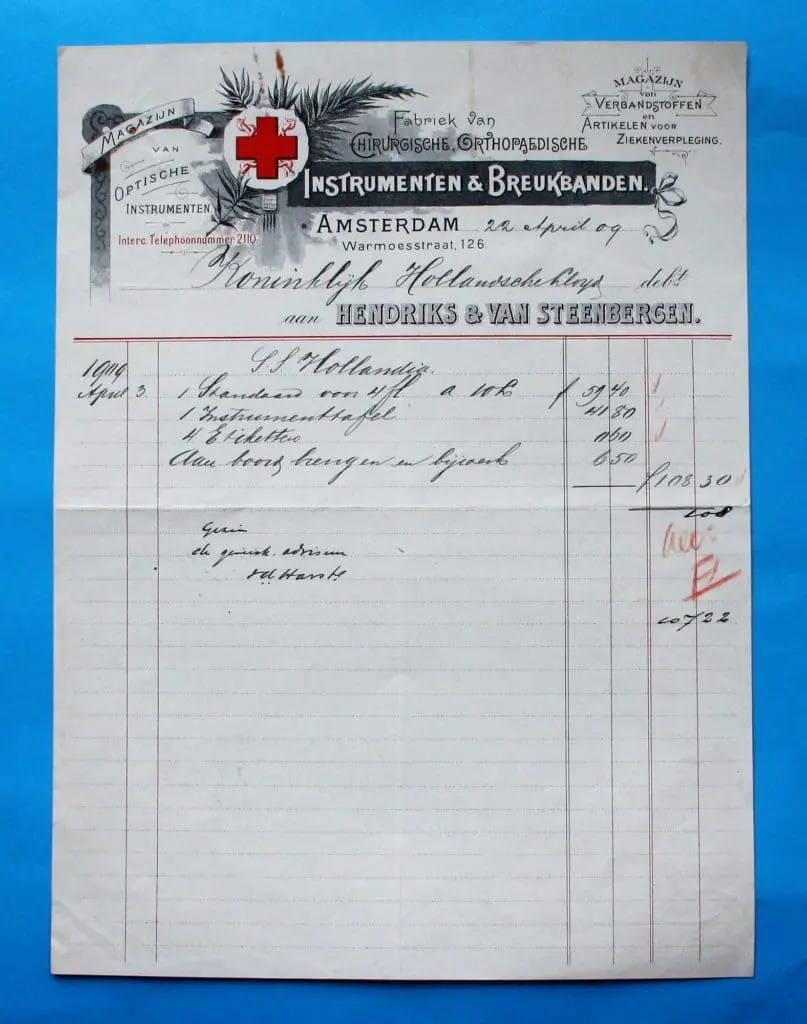 MAGAZIJN
VAN
OPTISCHE
INSTRUMENTEN
Interc. Telephoonnummer 2110.
Fabriek van
CHIRURGISCHE, ORTHOPAEDISCHE
INSTRUMENTEN & BREUKBANDEN.
MAGAZIJN
van
VERBANDSTOFFEN
en
ARTIKELEN VOOR
ZIEKENVERPLEGING.
AMSTERDAM 22 April 09
Warmoesstraat, 126.
Koninklijk Hollandsche Lloyd debt
aan HENDRIKS & VAN STEENBERGEN.
1909 S.S. Hollandia.
April 3. 1 Standaard voor 4 fl a 10 L f 59 40
1 Instrumenttafel 41 80
4 Etiketten 0 60
Aan boord brengen en bijwerk 6 50
f 108 30
108
Gezien
de geneesk. adviseur
107 22